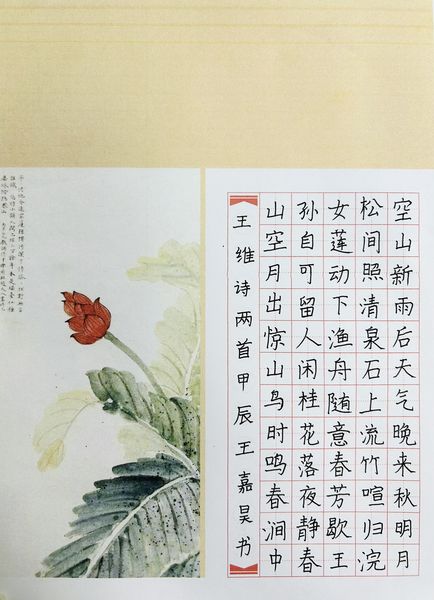 空山新雨后天气晚来秋明月
松间照清泉石上流竹喧归浣
女莲动下渔舟随意春芳歇王
孙自可留人闲桂花落夜静春
山空月出惊山鸟时鸣春涧中
王维诗两首甲辰王嘉昊书